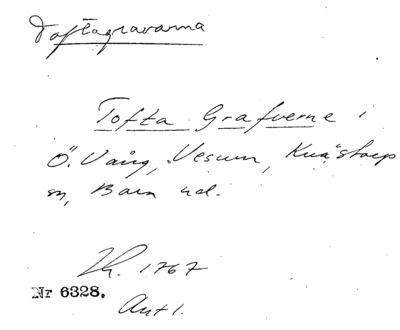 Toftagravarna
Tofta Grafverne i
Ö. Vång, Vesum, Knästorps
sn, Bara hd.
Lh. 1767
Nr 6328.
Ant 1.